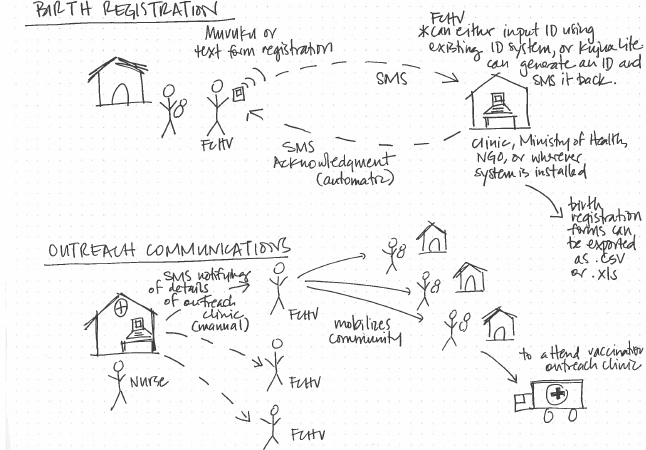 BIRTH REGISTRATION
Muvuku or
text form registration
FCHV
*can either input ID using
existing ID system, or Kujua Lite
can generate an ID and
SMS it back.
SMS
FCHV
SMS
Acknowledgment
(automatic)
Clinic, Ministry of Health,
NGO, or wherever
system is installed
birth
registration
forms can
be exported
as .csv
or .xls
OUTREACH COMMUNICATIONS
SMS notifying
of details
of outreach
clinic
(manual)
FCHV
mobilizes
community
Nurse
FCHV
FCHV
to attend vaccination
outreach clinic